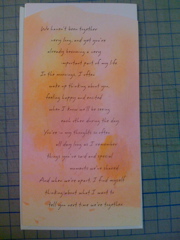 We haven't been together
very long, and yet you're
already becoming a very
important part of my life
In the morning, I often
wake up thinking about you
feeling happy and excited
when I know we'll be seeing
each other during the day
You're in my thoughts so often
all day long as I remember
things you've said and special
moments we've shared
And when we're apart, I find myself
thinking about what I want to
tell you next time we're together